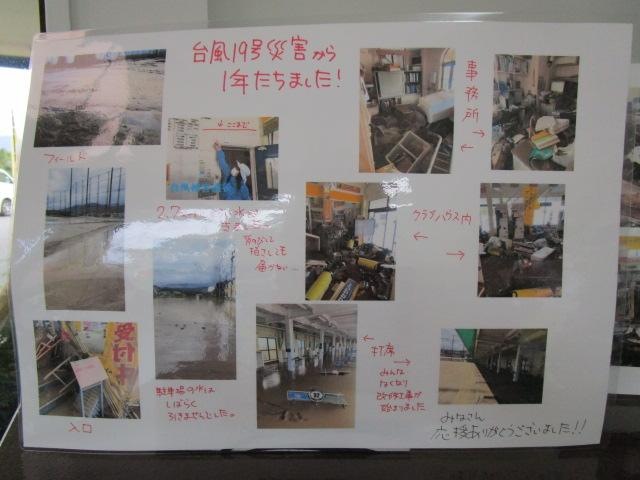 台風19号災害から
1年たちました!
事務所
フィールド
↓ここまで
クラブハウス内
背のびして
指さしても
届かない…
受付
入口
駐車場の水は
しばらく
引きませんでした。
打席
みんな
なくなり
改修工事が
始まりました
みなさん
応援ありがとうございました!!